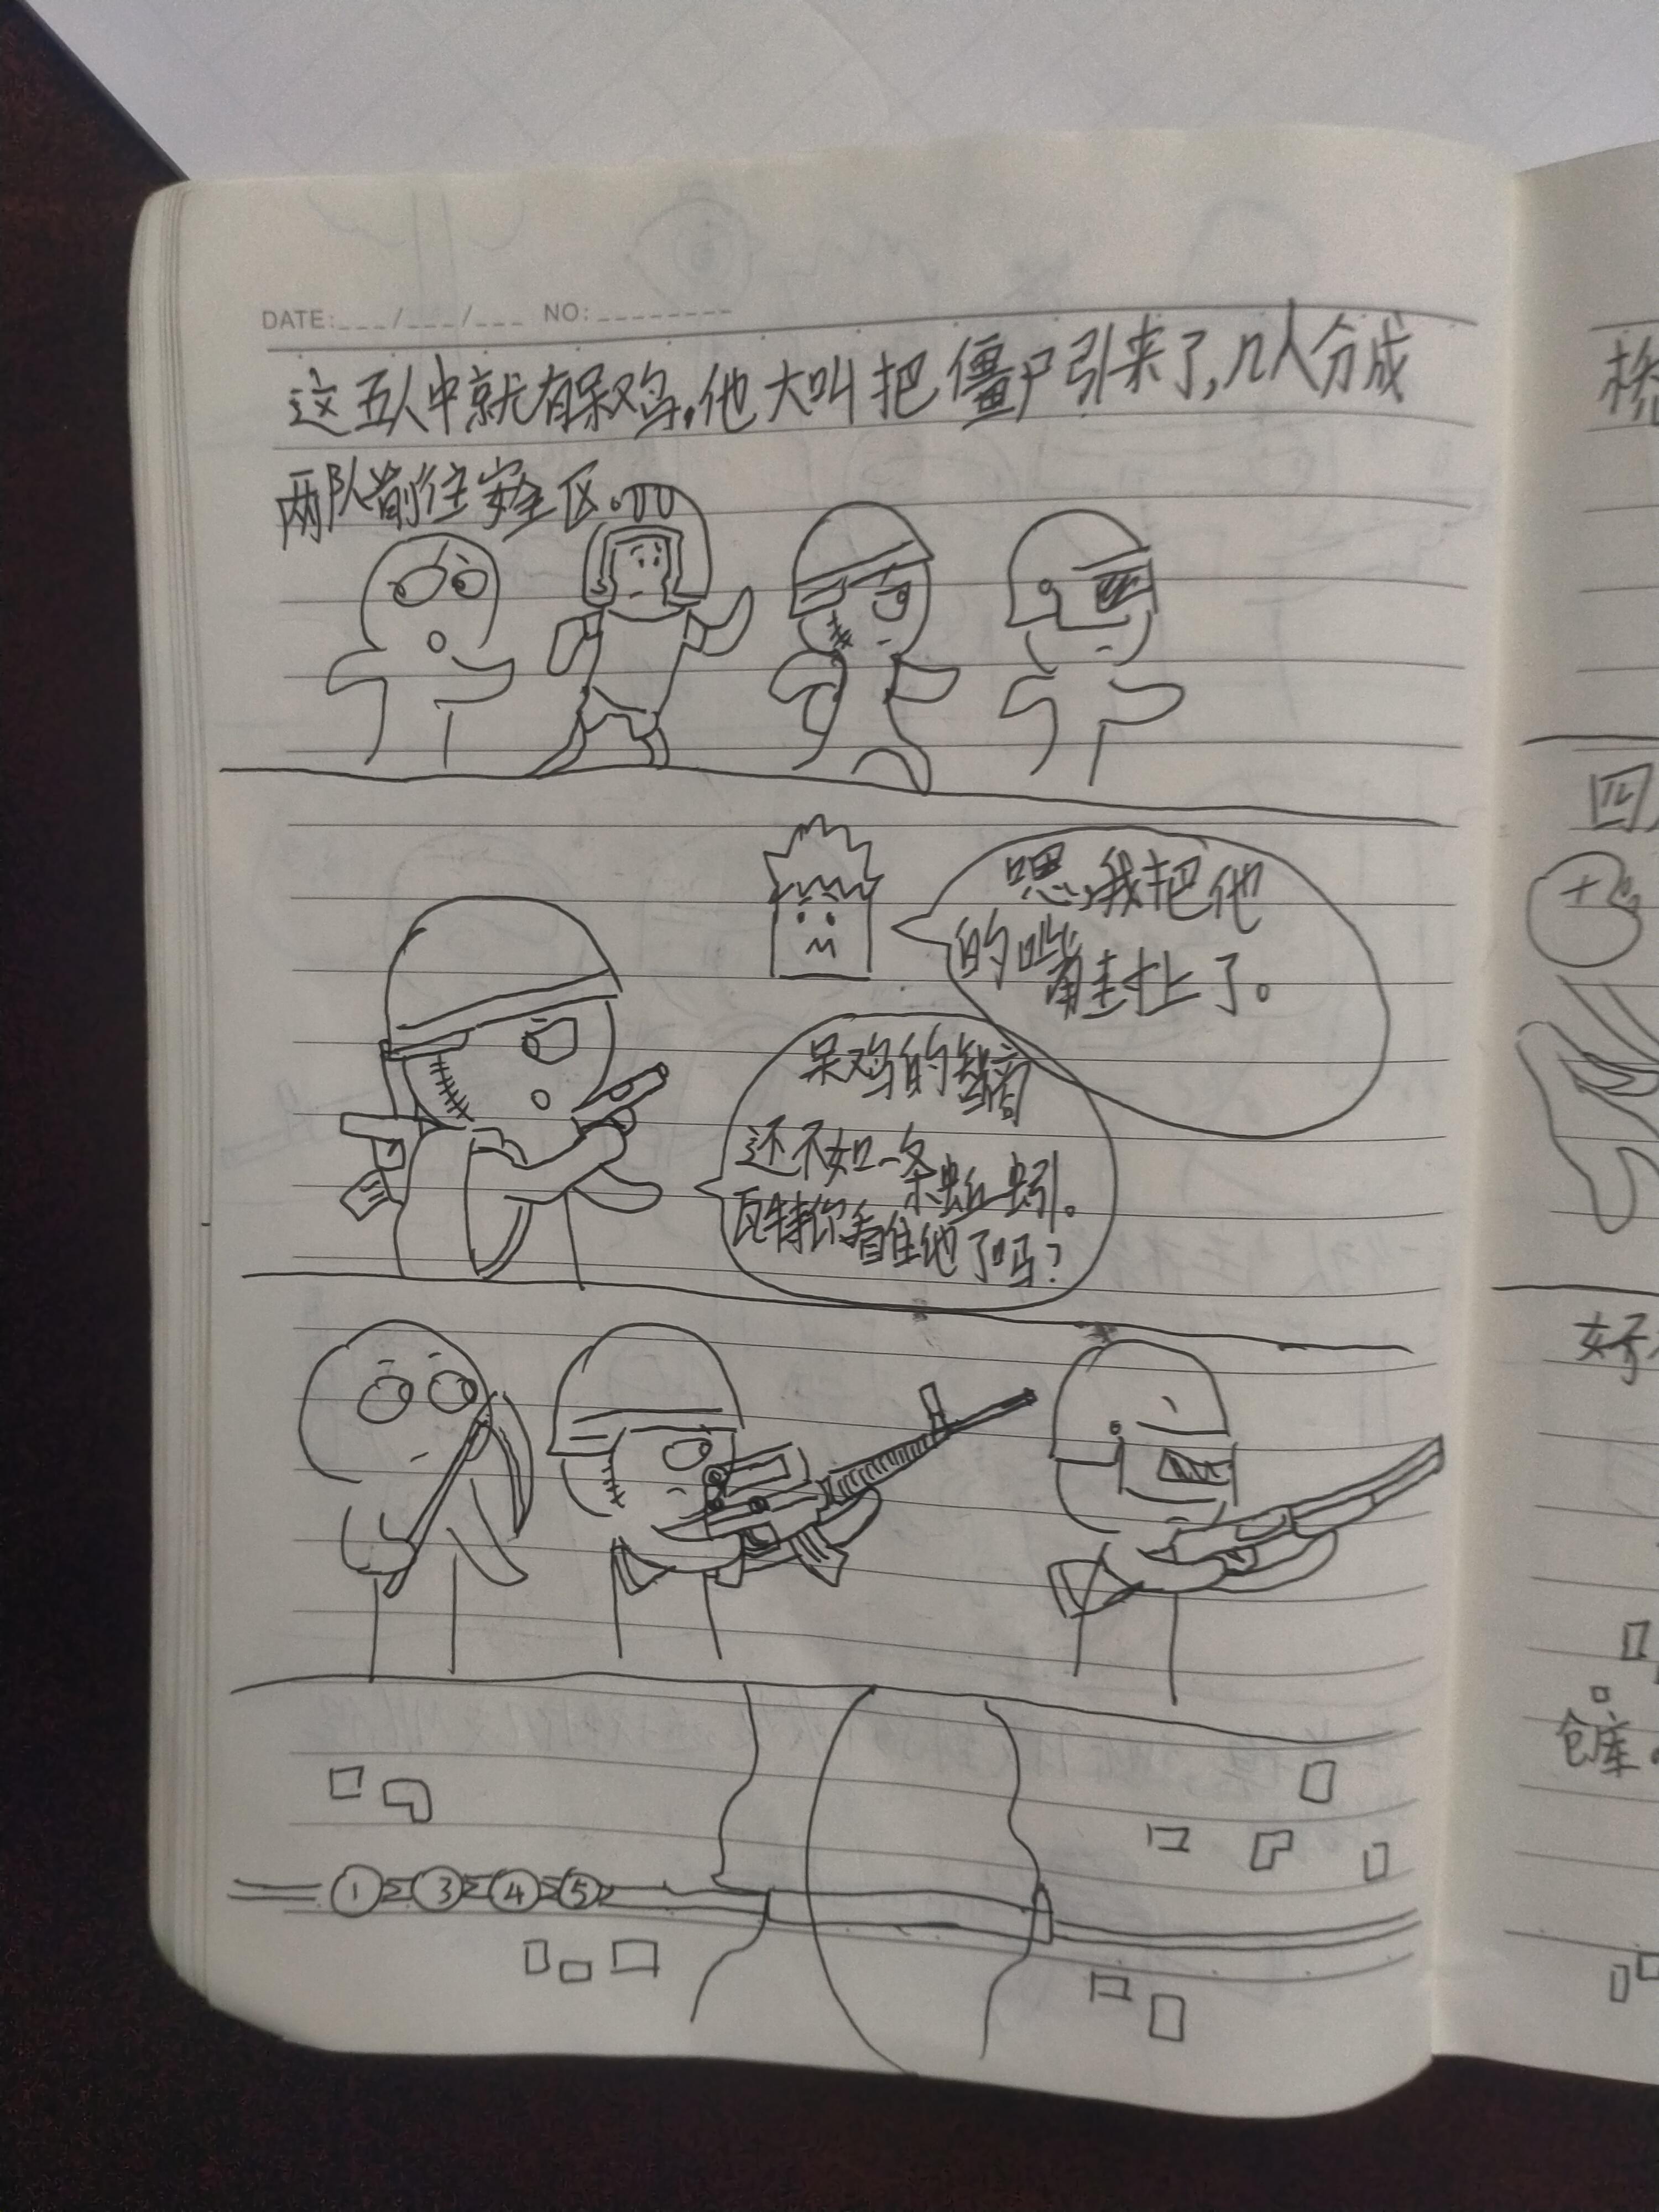 DATE:___/___/___ NO:________
这五人中就有呆鸡.他大叫把僵尸引来了,几人分成
两队前往安全区。
嗯,我把他
的嘴封上了。
呆鸡的智商
还不如一条蚯蚓。
瓦特你看住他了吗?
1 3 4 5
四
好
仓库